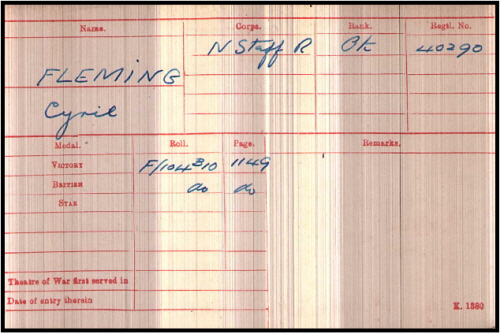 Name. Corps. Rank. Regtl. No.
FLEMING N Staff R Pte 40290
Cyril
Medal. Roll. Page. Remarks.
VICTORY F/104B10 1149
BRITISH do do
STAR
Theatre of War first served in
Date of entry therein
K. 1380